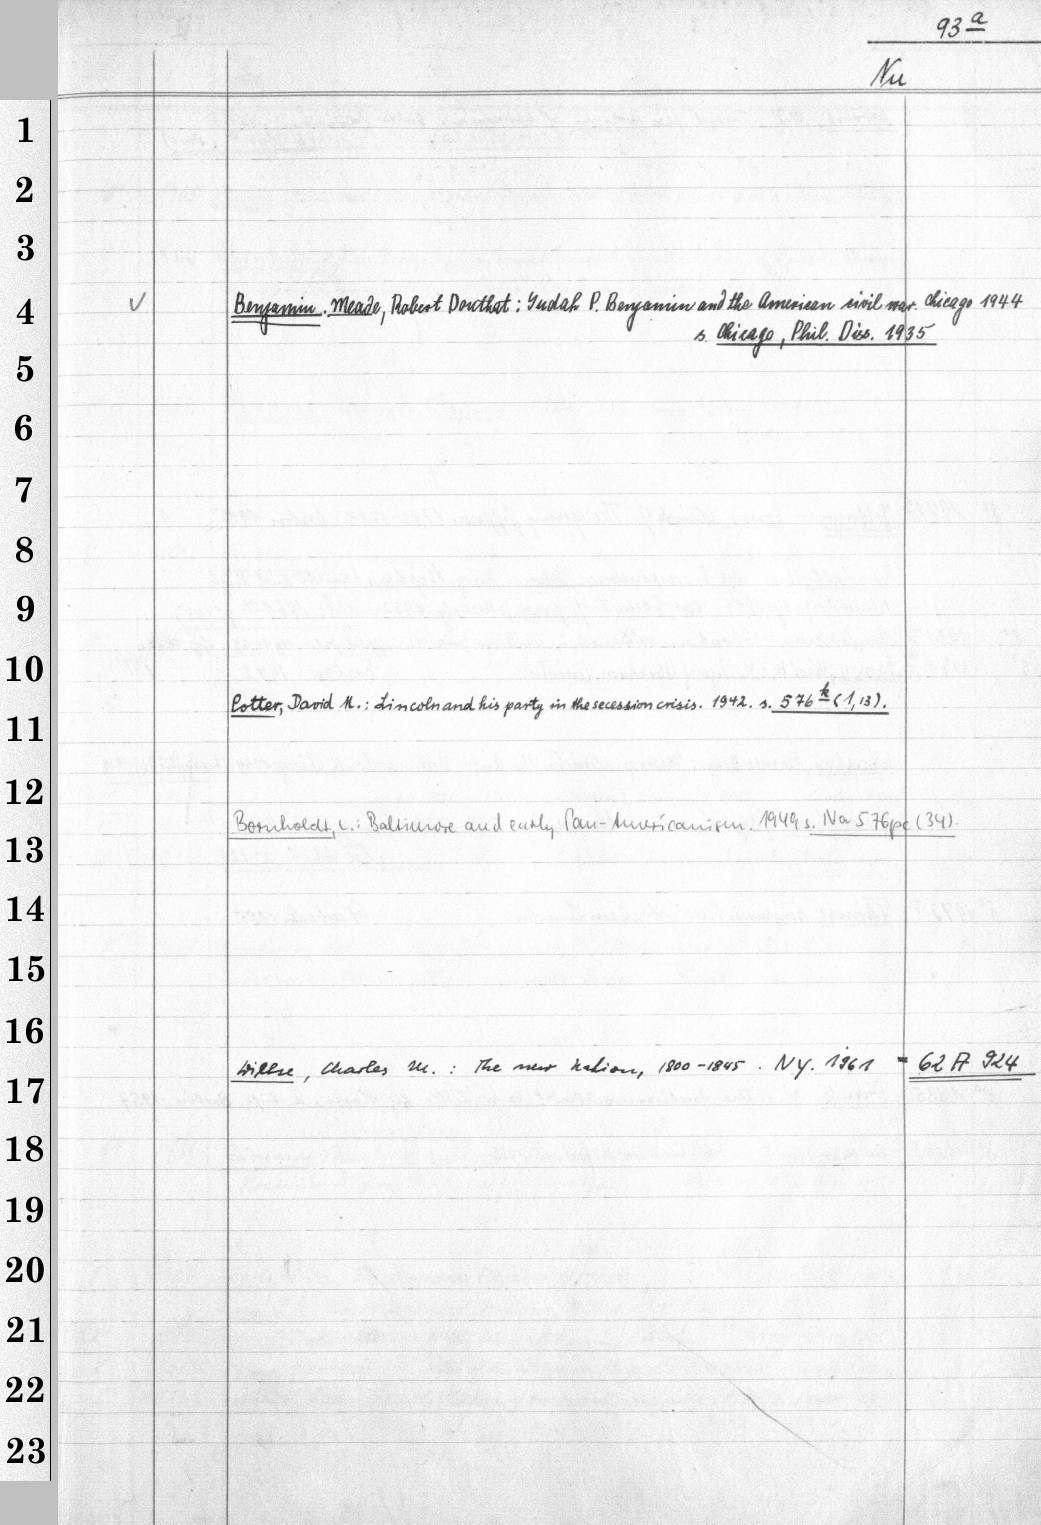 93 a
Nu
1
2
3
4 √ Benjamin. Meade, Robert Douthat: Judah P. Benjamin and the American civil war. Chicago 1944
s. Chicago, Phil. Diss. 1935
5
6
7
8
9
10
Potter, David M.: Lincoln and his party in the secession crisis. 1942. s. 576 k (1,13).
11
12
Bornholdt, L.: Baltimore and early Pan-Americanism. 1949 s. Na 576 pc (34).
13
14
15
16
Wiltse, Charles M.: The new nation, 1800-1845. N.Y. 1961 = 62 A 924
17
18
19
20
21
22
23